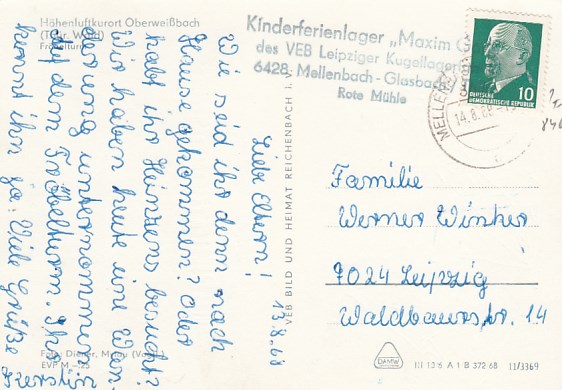 Höhenluftkurort Oberweißbach
(Thür. Wald)
Fröbelturm
Kinderferienlager „Maxim G
des VEB Leipziger Kugellager
6428 Mellenbach-Glasbach
Rote Mühle
DEUTSCHE
DEMOKRATISCHE REPUBLIK
10
MELLENB
14.8.68
13.8.68
Liebe Eltern!
Wie seid ihr denn nach
Hause gekommen? Oder
habt ihr Heinzens besucht?
Wir haben heute eine Wan-
derung unternommen
auf dem Fröbelturm. Ihr
kennt ihn ja. Viele Grüße
Kerstin
VEB BILD UND HEIMAT REICHENBACH i. V.
Familie
Werner Winkler
7024 Leipzig
Waldbaurstr. 14
EVP M –.25
DAMW
III 18 6 A 1 B 372 68 11/3369